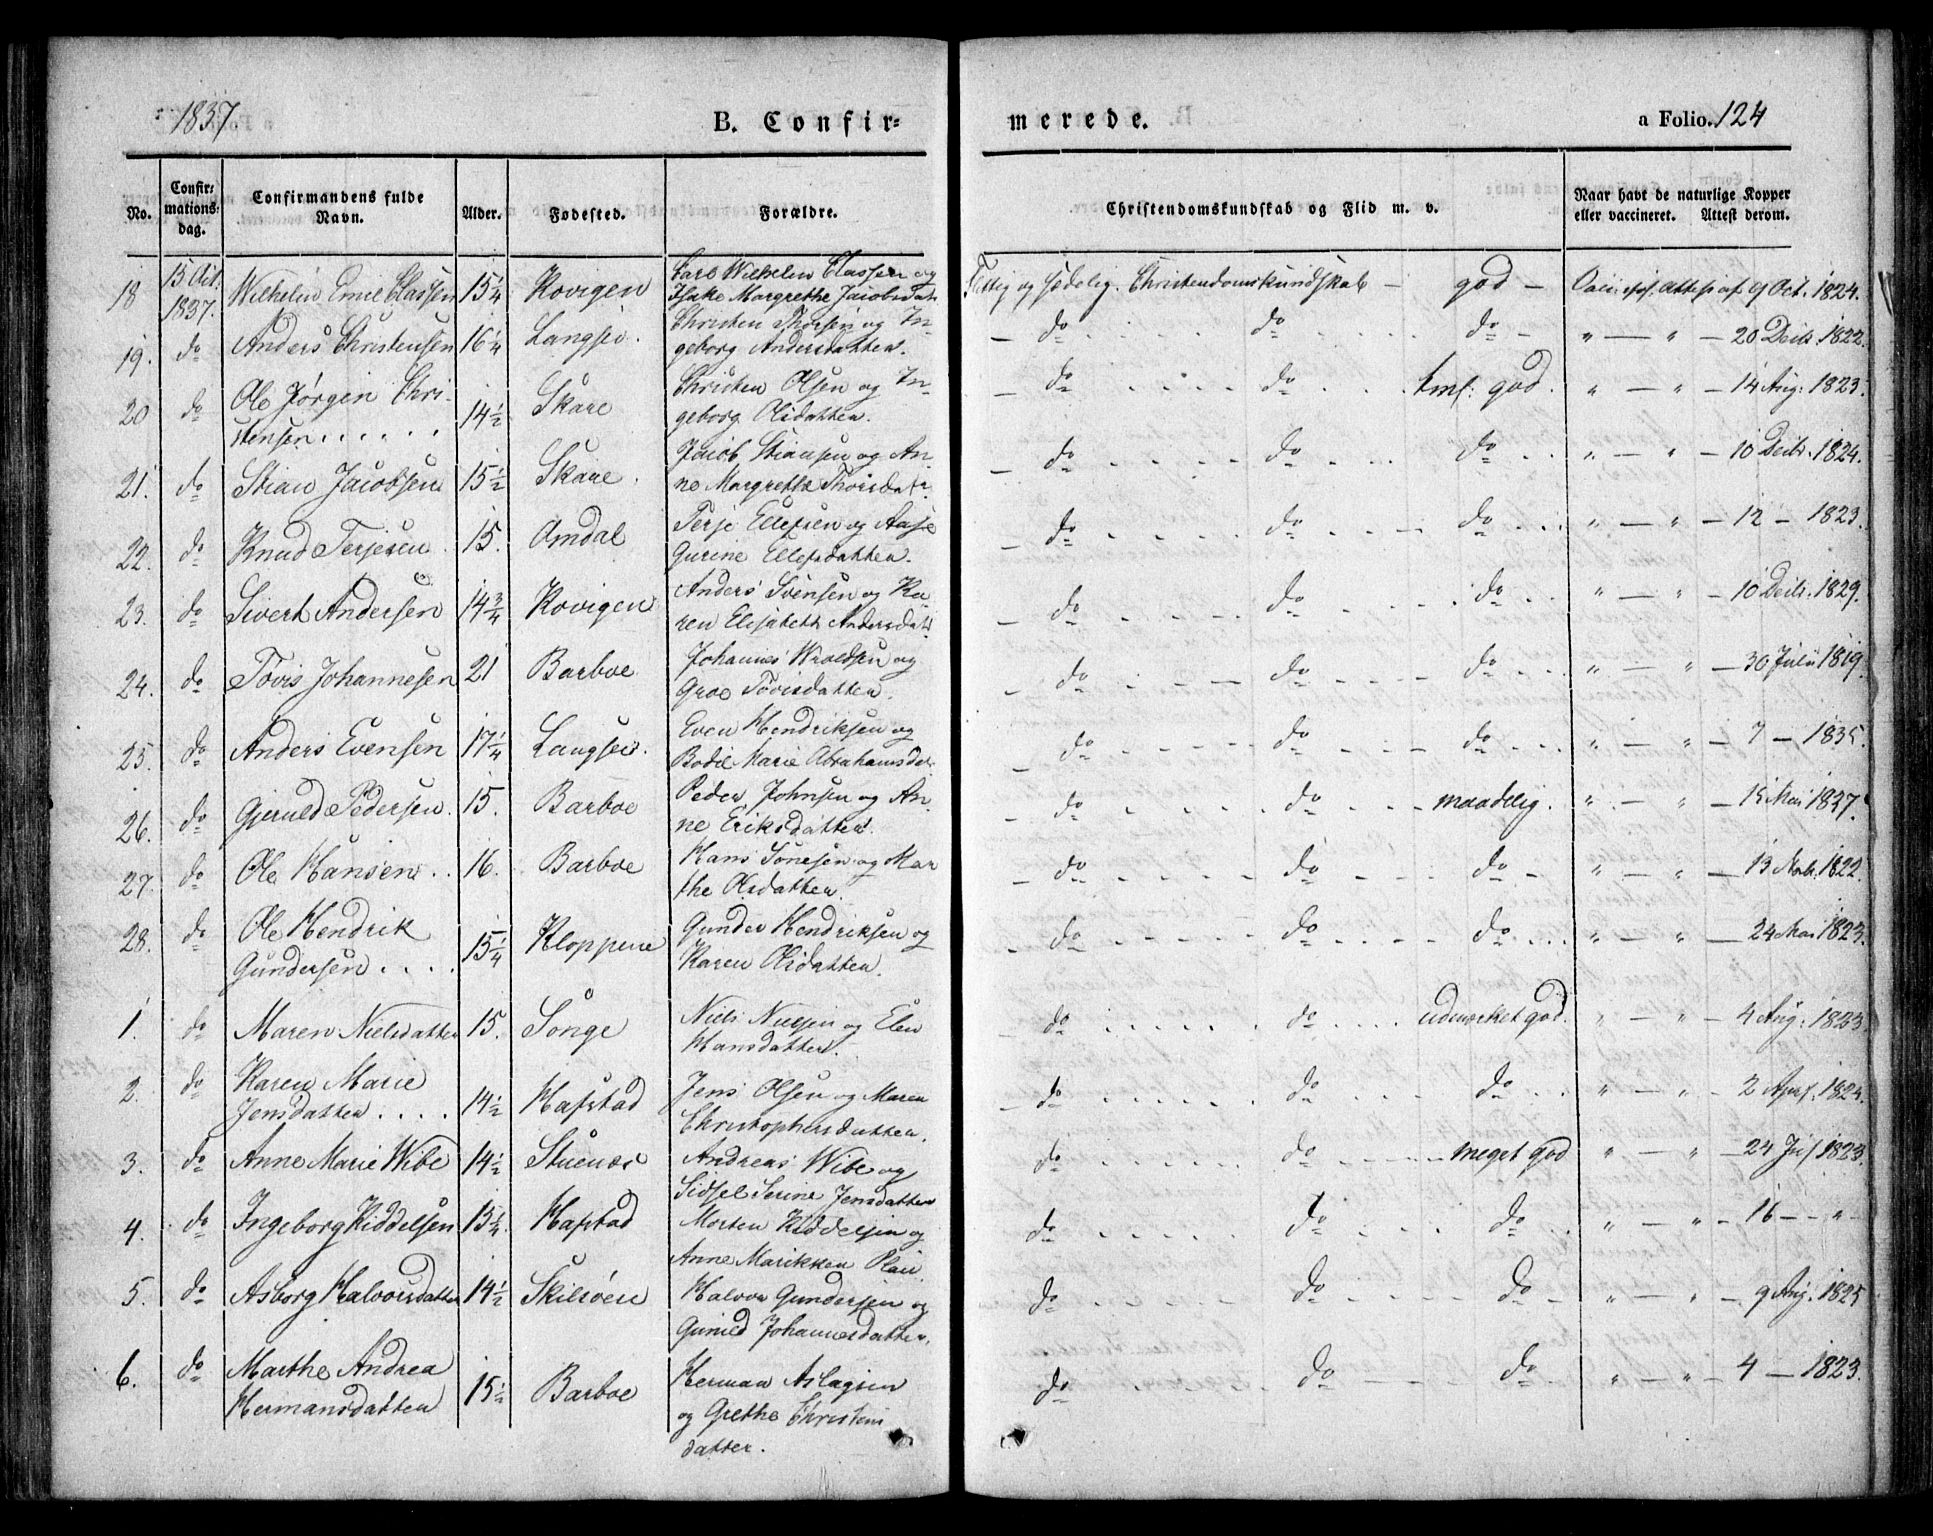 1837
B. Confir-
merede.
a Folio. 124
No.
Confir-
mations-
dag.
Confirmandens fulde
Navn.
Alder.
Fødested.
Forældre.
Christendomskundskab og Flid m. v.
Naar havt de naturlige Kopper
eller vaccineret. Attest derom.
18 15 Oct. 1837. Wilhelm Emil Classen 15 1/4 Kovigen Carl Wilhelm Classen og
Margrethe Jacobsdat. og sædelig. Christendomskundskab - god - 9 Oct. 1824.
19. do Anders Christensen 16 1/4 Langsev. Christen Thorsen og In-
geborg Andersdatter. do do do 20 Decb. 1822.
20 do Ole Jørgen Chri-
stensen 14 1/2 Skare Christen Olsen og In-
geborg Olsdatter. do do tml. god. 14 Aug: 1823.
21. do Stian Jacobsen 15 1/2 Skare. Jacob Stiansen og An-
ne Margrethe Thorsdatr. do do do 10 Decb. 1824.
22. do Knud Terjesen 15. Amdal Terje Ellefsen og Aase
Gurine Ellefsdatter. do do do 12 - 1823.
23. do Sivert Andersen 14 3/4 Kovigen Anders Svensen og Ka-
ren Elisabeth Andersdat. do do do 10 Decb. 1829.
24. do Tovis Johannesen 21 Barboe Johannes Wroldsen og
Groe Tovisdatter. do do do 30 Julii 1819.
25. do Anders Evensen 17 1/4 Langsev. Even Hendriksen og
Bodil Marie Abrahamsdat. do do do 7 - 1835.
26. do Gjeruld Pedersen. 15. Barboe Peder Johnsen og An-
ne Eriksdatter. do do maadelig. 15 Mai 1827.
27. do Ole Hansen. 16. Barboe Hans Tønesen og Mar
the Olsdatter. do do do 13 Novb. 1822.
28. do Ole Hendrik
Gundersen 15 1/4 Kloppene Gunder Hendriksen og
Karen Olsdatter. do do do 24 Mai 1823.
1. do Maren Nielsdatter 15. Songe Niels Nielsen og Elen
Hansdatter. do do udmærket god. 4 Aug: 1823.
2. do Karen Marie
Jensdatter 14 1/2 Hafstad Jens Olsen og Maren
Christophersdatter. do do do 2 Apr. 1824.
3. do Anne Marie Wibe 14 1/2 Stuenæs Andreas Wibe og
Sidsel Serine Jensdatter do do meget god 24 Jul 1823.
4. do Ingeborg Kiddelsen 15 1/4. Hafstad Morten Kiddelsen og
Anne Marikken do do do 16 - " -
5. do Asborg Halvorsdatter 14 1/2 Skilsøen Halvor Gundersen og
Gunild Johannesdatter. do do do 9 Aug. 1825
6. do Marthe Andrea
Hermansdatter 15 1/2 Barboe Herman Aslagsen
og Grethe Christens
datter. do do do 4 - 1823.